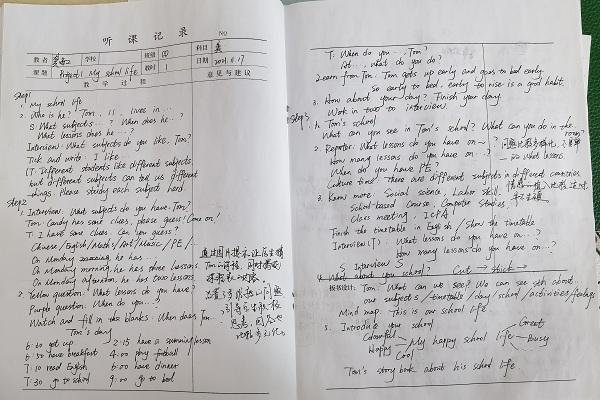 听课记录
NO
教者
学校
班级 四
科目 英
课题 Project1 My school life
课时 1
日期 2024.11.17
教学过程
意见与建议
Step1
1. My school life
2. Who is he? Tom, 11, lives in...
S: What subjects...? When does he...?
What lessons does he...?
Interview: What subjects do you like, Tom?
Tick and write: I like
(T: Different students like different subjects,
but different subjects can tell us different
things. Please study each subject hard.
Step2
1. Interview: What subjects do you have, Tom?
Tom: Candy has some clues, please guess! Come on!
T: I have some clues. Can you guess?
Chinese / English / Maths / Art / Music / PE /
On Monday morning, he has...
On Monday morning, he has three lessons.
On Monday afternoon, he has two lessons.
2. Yellow question: What lessons do you have?
Purple question: When do you...?
Watch and fill in the blanks: When does Tom...
Tom's day
6:40 get up 2:15 have a swimming lesson
6:50 have breakfast 4:00 play football
7:10 read English 6:00 have dinner
7:30 go to school 9:00 go to bed
T: When do you..., Tom?
At..., what do you do?
Learn from Tom: Tom gets up early and goes to bed early.
So early to bed, early to rise is a good habit.
3. How about your day? Finish your day.
Work in two to interview.
Step3
1. Tom's school
What can you see in Tom's school? What can you do in the room?
2. Reporter: What lessons do you have on~
How many lessons do you have on...?
When do you have PE?
Culture time: There are different subjects in different countries.
3. Know more: Social science, Labor skill,
School-based Course, Computer Studies,
Class meeting, ICPA
Finish the timetable in English / Show the timetable
Interview(T): What lessons do you have on...?
How many lessons do you have on...?
S Interview S
4. What about you school? Cut → stick →
板书设计: Tom: What can we see? We can see sth about
our subjects / timetable / day / school / activities / feelings
Mind map: This is our school life
5. Introduce your school
Colourful
Happy
Cool
My happy school life
Great
Busy
Tom's story book about his school life.